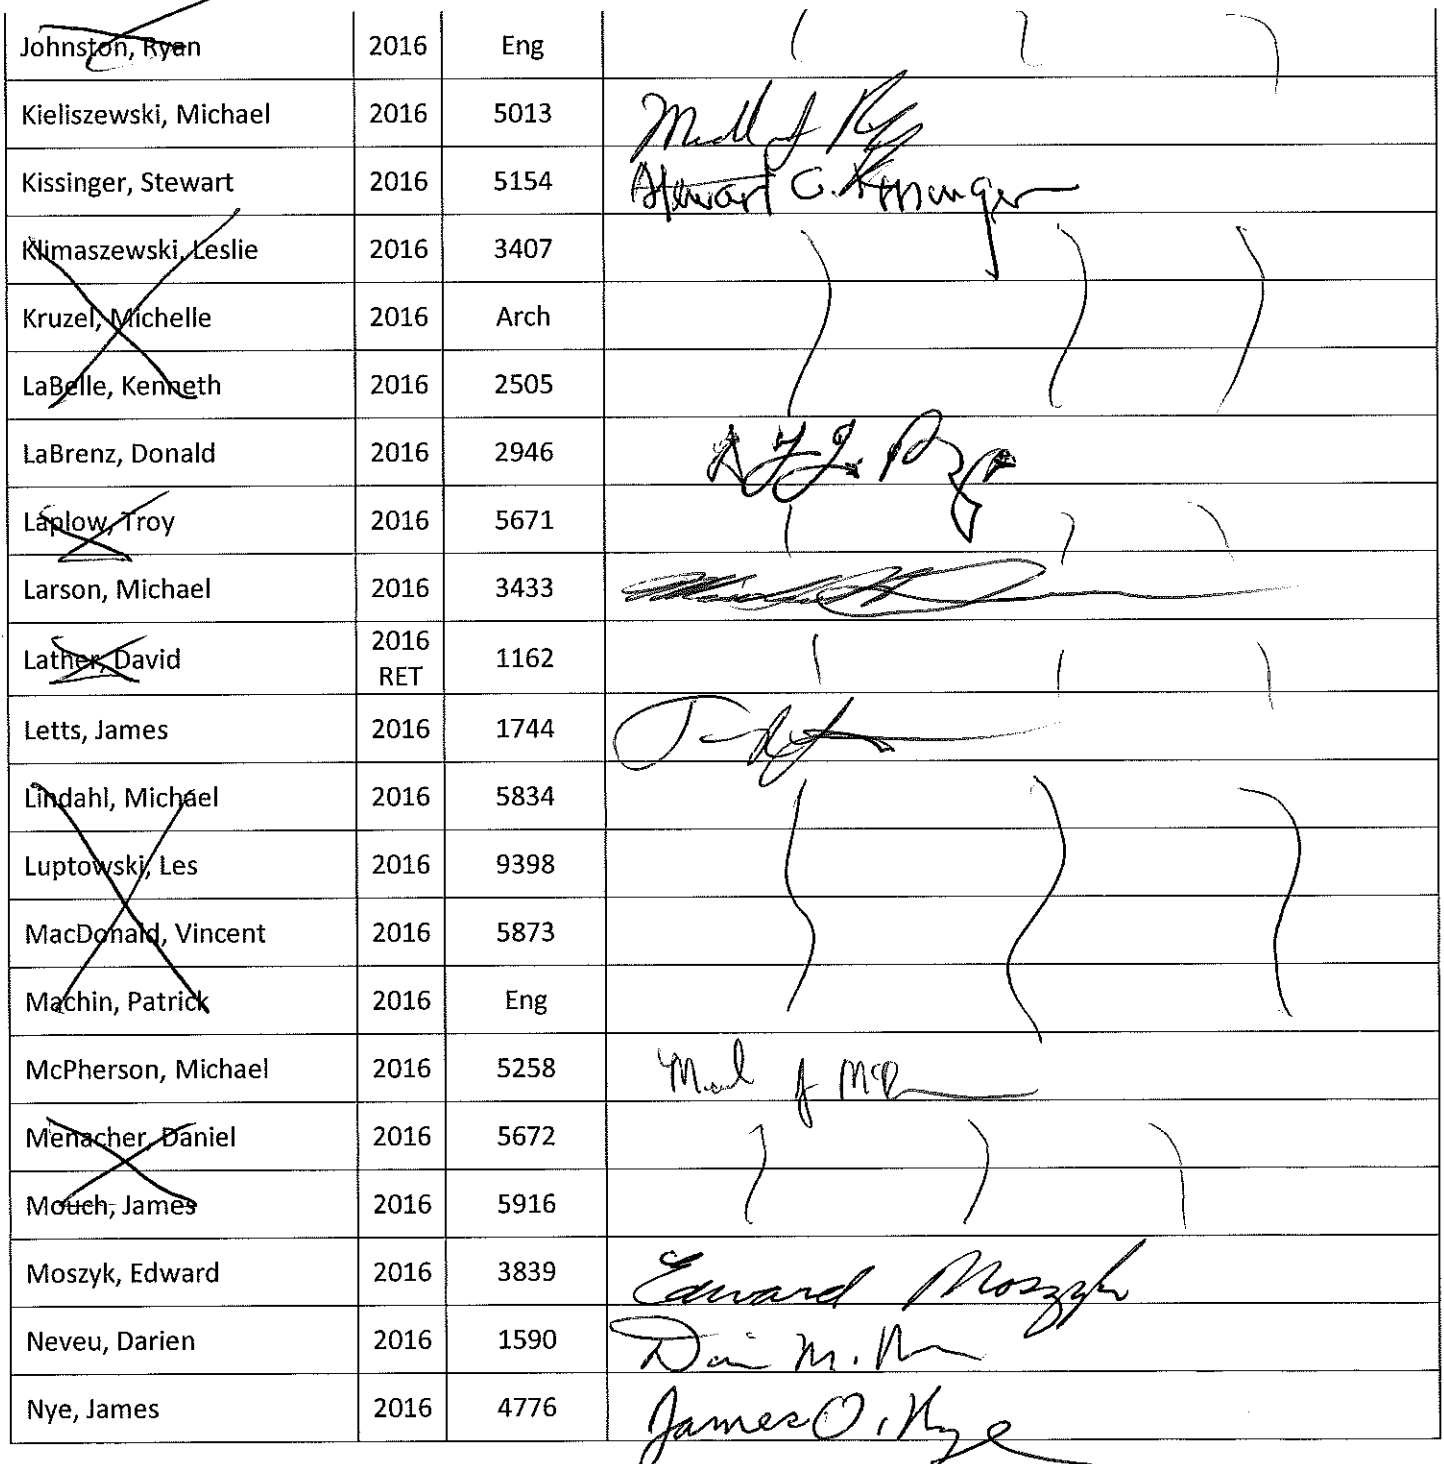 Johnston, Ryan 2016 Eng
Kieliszewski, Michael 2016 5013
Kissinger, Stewart 2016 5154 Stewart C. Kissinger
Klimaszewski, Leslie 2016 3407
Kruzel, Michelle 2016 Arch
LaBelle, Kenneth 2016 2505
LaBrenz, Donald 2016 2946
Laplow, Troy 2016 5671
Larson, Michael 2016 3433
Lather, David 2016 RET 1162
Letts, James 2016 1744
Lindahl, Michael 2016 5834
Luptowski, Les 2016 9398
MacDonald, Vincent 2016 5873
Machin, Patrick 2016 Eng
McPherson, Michael 2016 5258
Menacher, Daniel 2016 5672
Mouch, James 2016 5916
Moszyk, Edward 2016 3839 Edward Moszyk
Neveu, Darien 2016 1590
Nye, James 2016 4776 James O. Nye